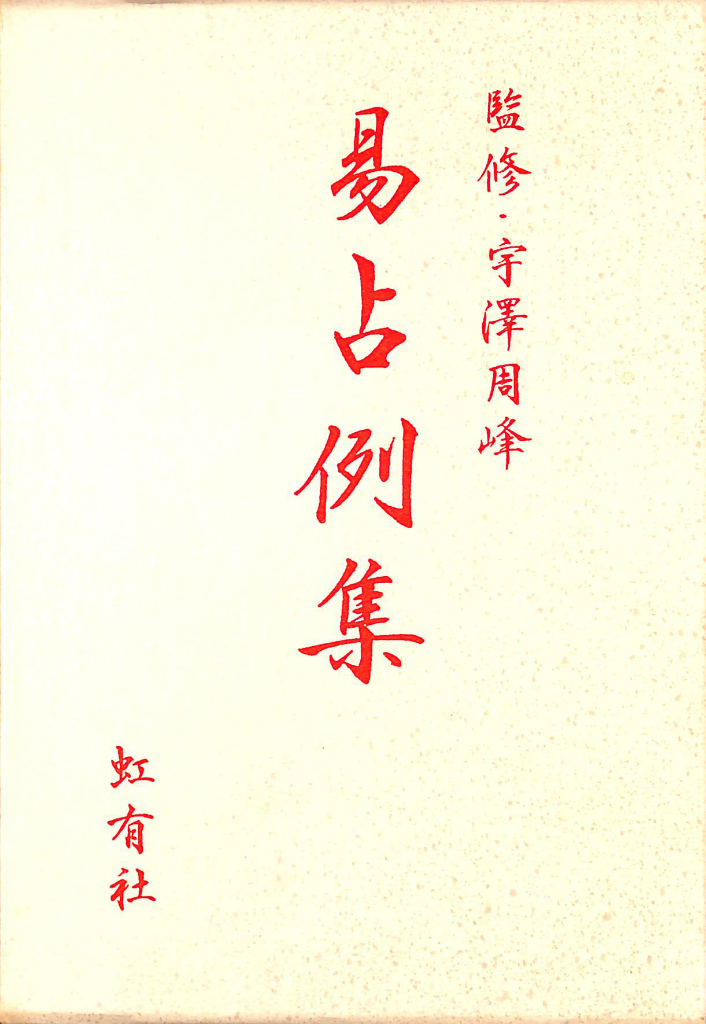 監修・宇澤周峰
易占例集
虹有社